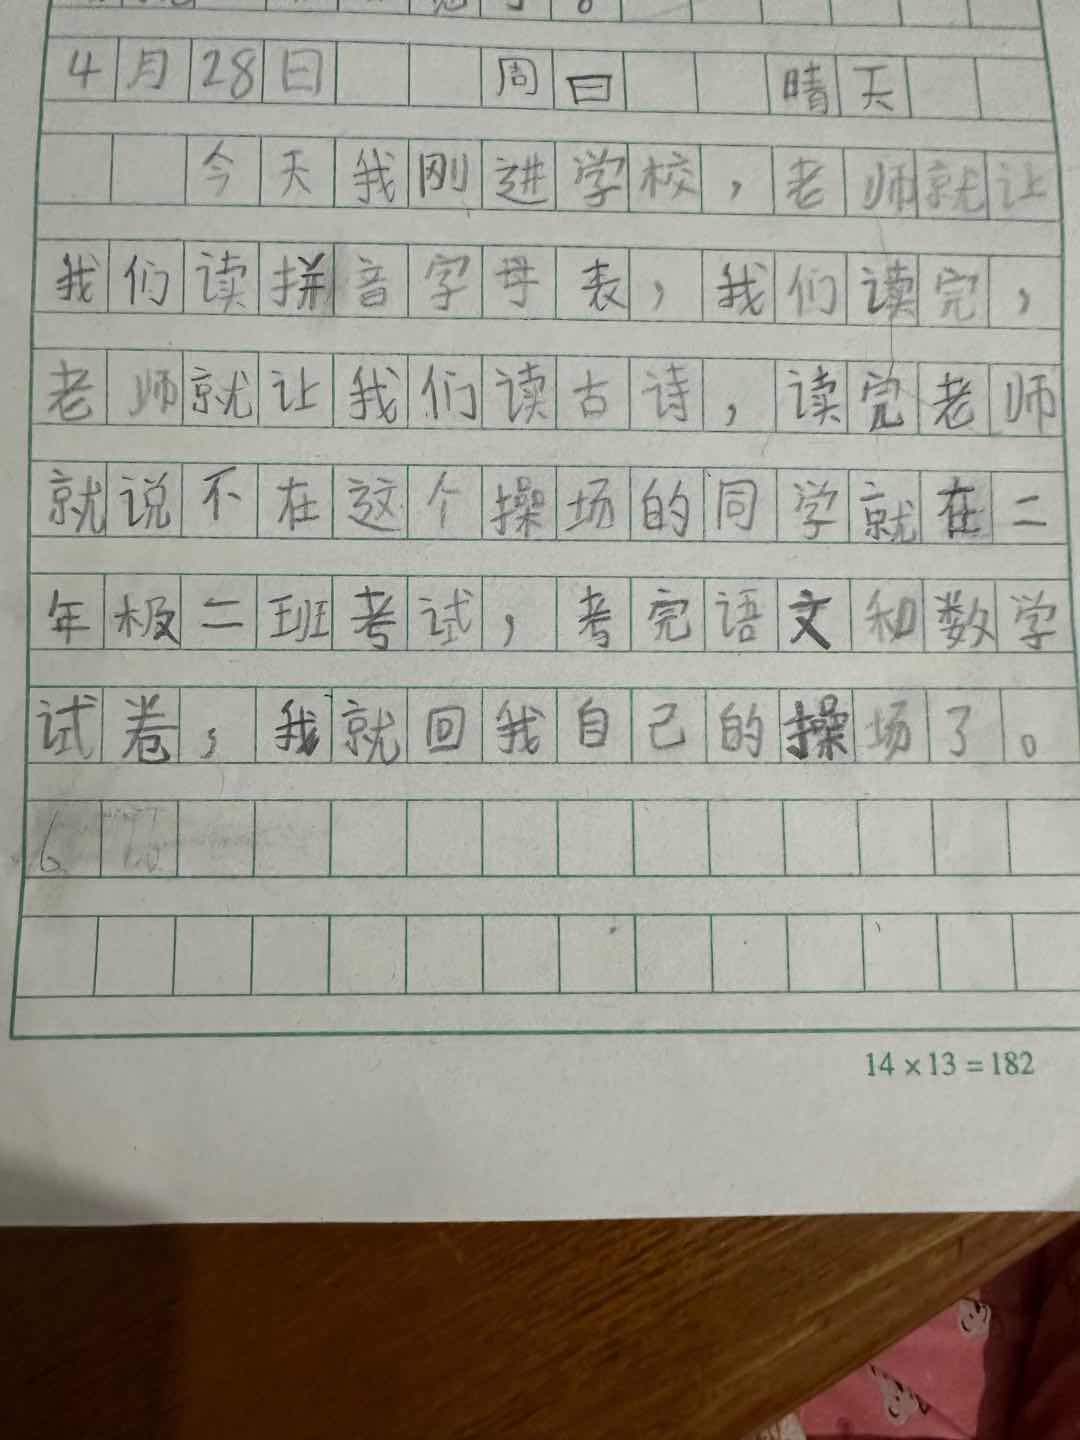 4月28日 周日 晴天
今天我刚进学校，老师就让
我们读拼音字母表，我们读完，
老师就让我们读古诗，读完老师
就说不在这个操场的同学就在二
年极二班考试，考完语文和数学
试卷，我就回我自己的操场了。
14×13=182